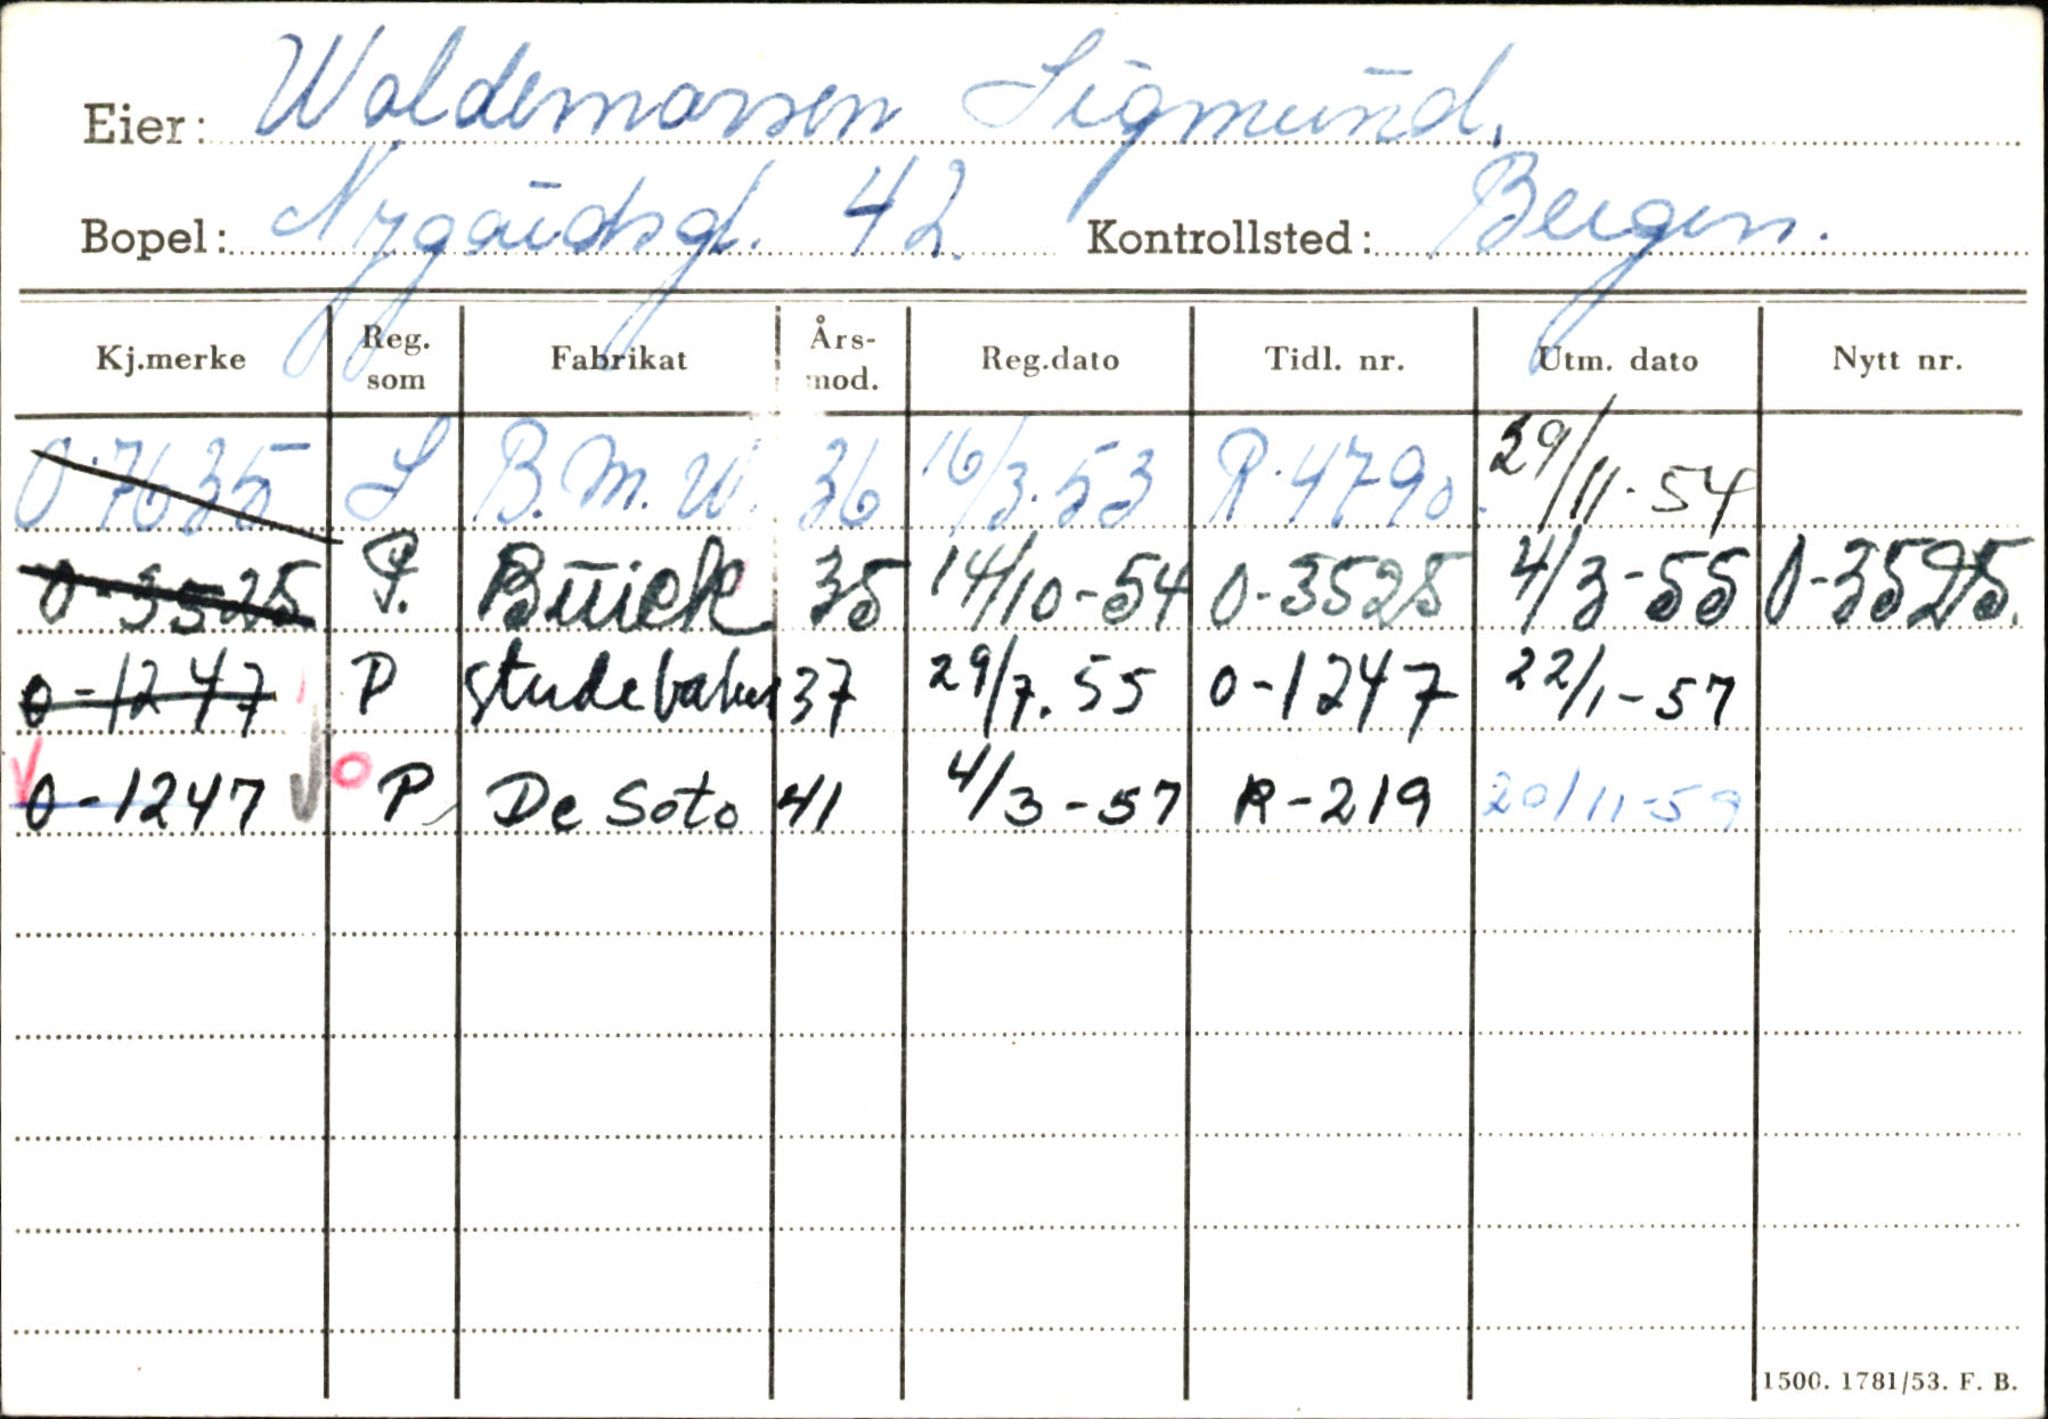 Eier: Woldemarsen Sigmund,
Bopel: Nygårdsgt. 42. Kontrollsted: Bergen.
Kj.merke Reg. som Fabrikat Års-mod. Reg.dato Tidl. nr. Utm. dato Nytt nr.
O-7635 L B.M.W. 36 16/3.53 R-4790. 29/11-54
O-3525 P. Buick 35 14/10-54 O-3525 4/3-55 O-3525.
O-1247 P studebaker 37 29/7.55 O-1247 22/1-57
O-1247 P De Soto 41 4/3-57 R-219 20/11-59
1500. 1781/53. F. B.